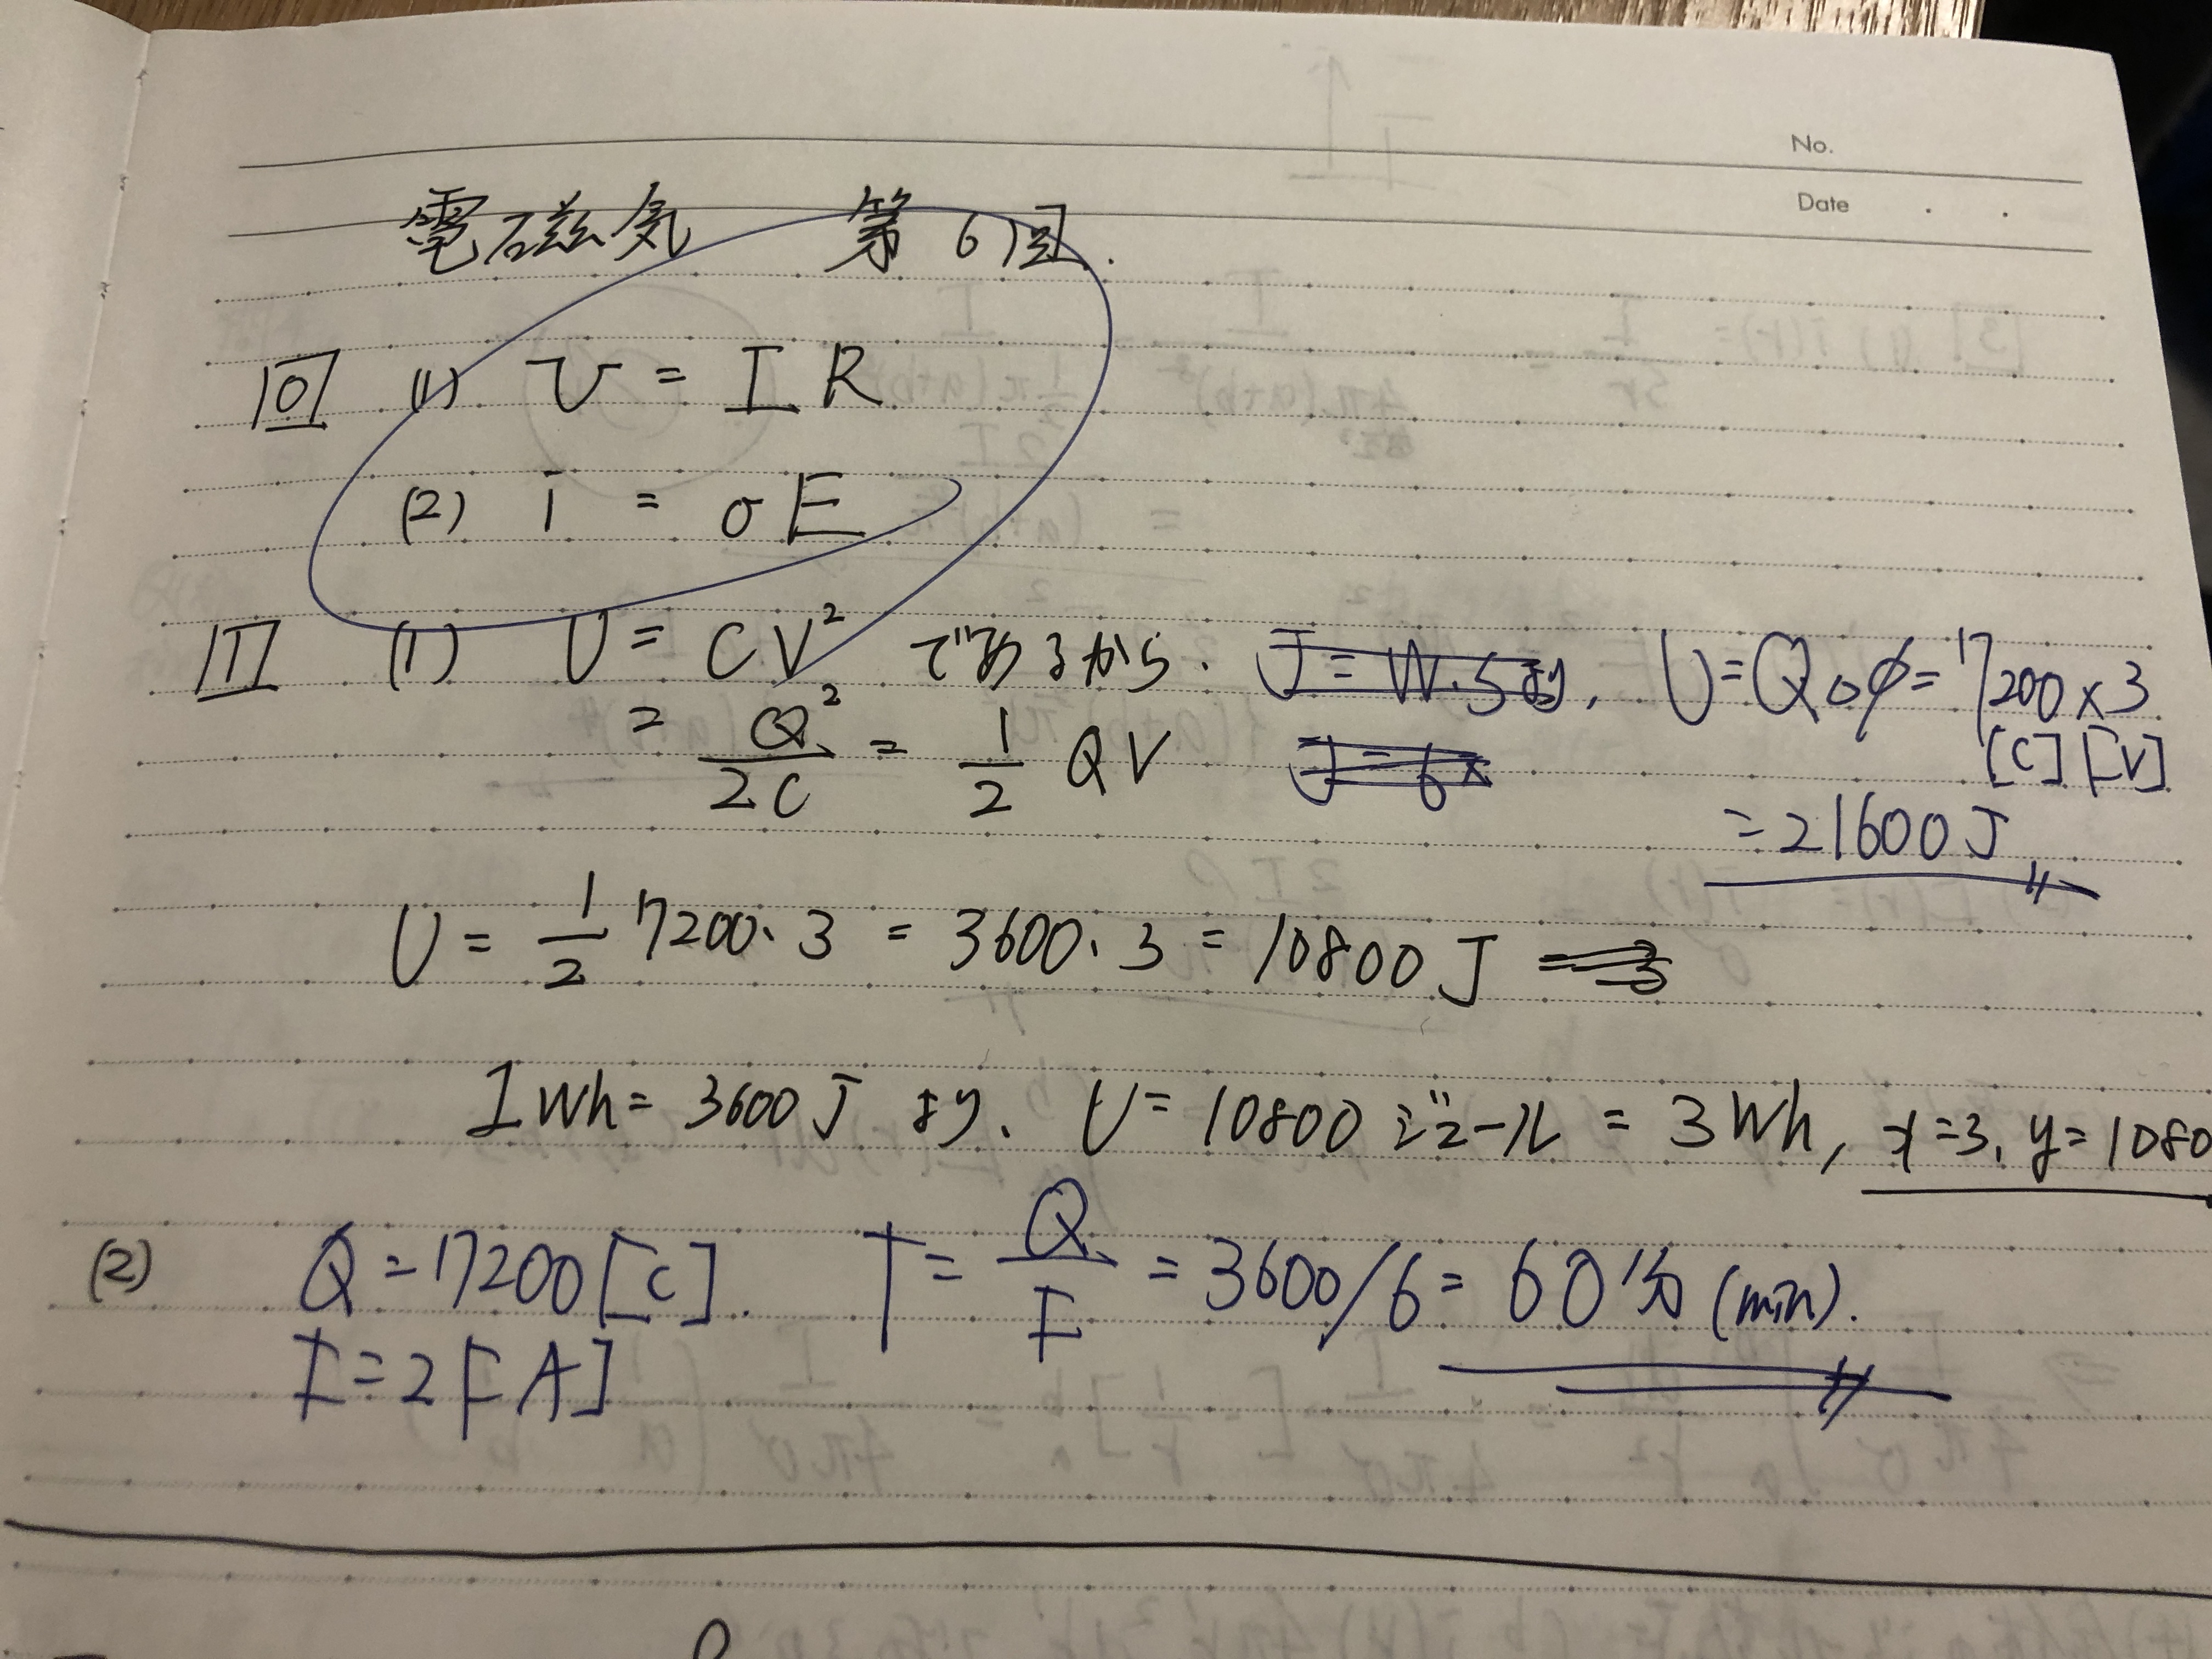 No.
Date
電磁気 第6回.
[0] (1) V = I R
(2) i = σE
[1] (1) U = CV² であるから. J = W·S より, U = Q₀φ = 7200 × 3
[C] [V]
= Q²/2C = 1/2 QV J = 6× = 21600 J
U = 1/2 7200・3 = 3600・3 = 10800 J
1Wh = 3600 J より、 U = 10800 ジュール = 3 Wh, x = 3, y = 1080
(2) Q = 7200 [C]. T = Q/I = 3600/6 = 60分 (min).
I = 2 [A]